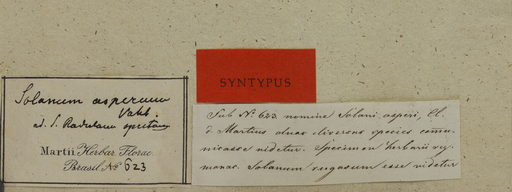 Solanum asperum
Vahl.
ad. S. Radulam
Martii Herbar. Florae
Brasil. No 623
SYNTYPUS
Sub No 623. nomine Solani asperi, Cl.
d. Martius duas diversas species commu-
nicasse videtur. Specimen herbarii reg.
monac. Solanum rugosum esse videtur